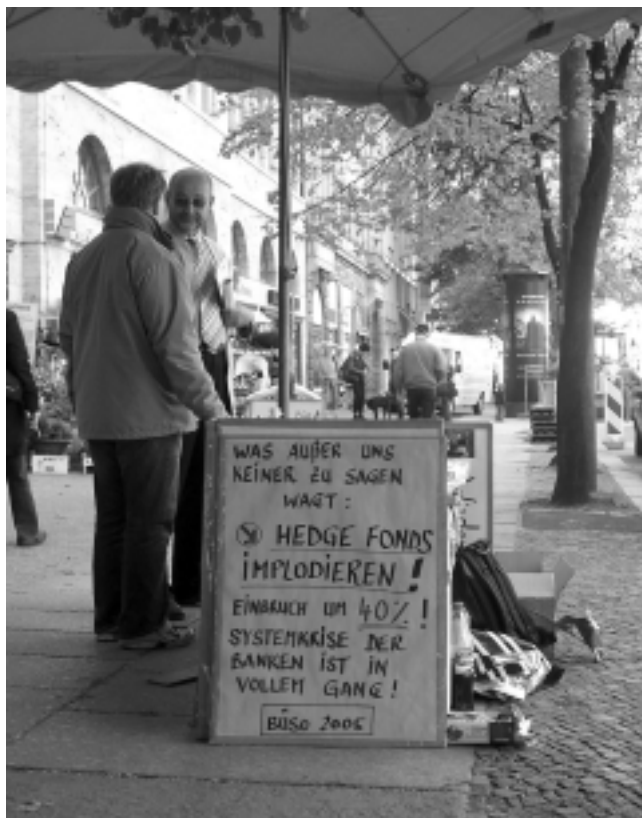 WAS AUßER UNS
KEINER ZU SAGEN
WAGT:
HEDGE FONDS
IMPLODIEREN!
EINBRUCH UM 40%!
SYSTEMKRISE DER
BANKEN IST IN
VOLLEM GANG!
BÜSO 2006